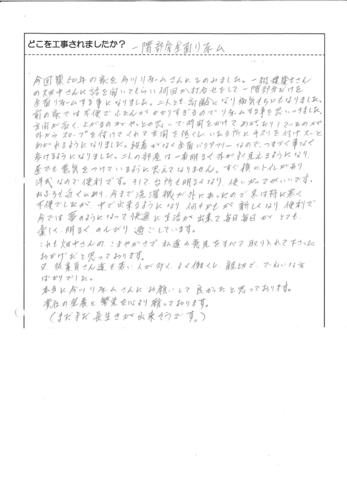 どこを工事されましたか? 一階部分全面リフォーム
今回築50年の家を今川リフォームさんにたのみました。一級建築士さん
の さんに話を聞いてもらい何回か打合せをして一階部分だけを
全面リフォームする事になりました。二人とも高齢になり病気もちにもなりました。
前の家では不便で
玄関が高く、上がるのがやっとの思いで時間をかけて
外からスロープを付けてくれて玄関を低くし、いたる所に手スリを付けスーと
あがれるようになりました。段差がなく全面バリアフリーなので、つまづく事なく
歩けるようになりました。二人の部屋は一番明るく外がよく見えるようになり、
昼でも電気をつけているように思えてなりません。すぐ横にトイレがあり
洋式なので便利です。そして台所も明るくなり使い勝手がいいです。
おふろも近くにあり、今まで洗濯機が外にあったので冬は特に寒く
不便でしたが、中で出来るようになり何もかもが新しくなり便利で
今では夢のようになって快適に生活が出来て毎日毎日がとても
楽しく、明るくのんびり過ごしています。
これも さんのこまやかさで私達の意見をすべて取り入れて下さった
おかげだと思っております。
又、従業員さん達も若い人が多く、よく働くし、親切で、ていねいな方
ばかりでした。
本当に今川リフォームさんにお願いして良かったと思っております。
貴社の発展と繁栄を心より願っております。
(まだまだ長生きが出来そうです。)